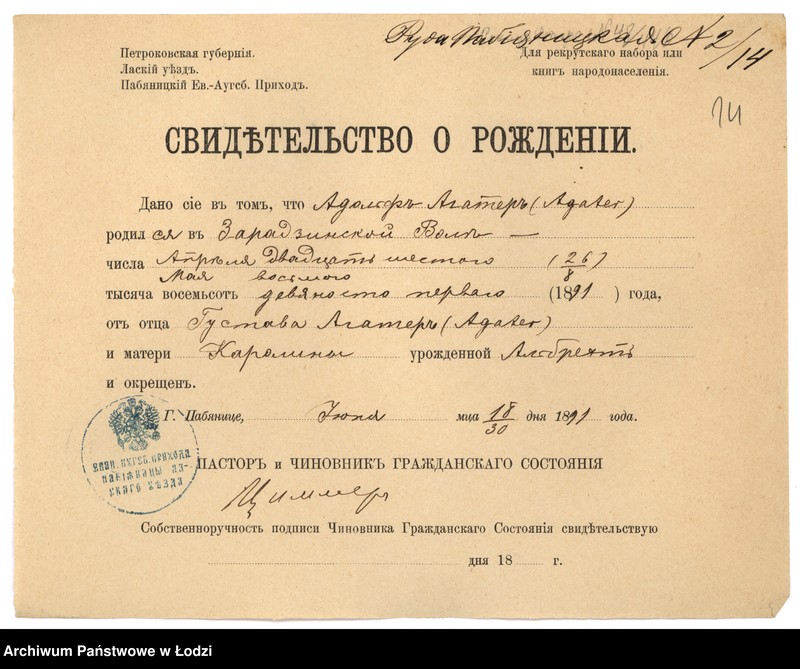 Руда Пабіяницкая С N 2/14
Петроковская губернія.
Ласкій уѣздъ.
Пабяницкій Ев.-Аугсб. Приходъ.
Для рекрутскаго набора или
книгъ народонаселенія.
14
СВИДѢТЕЛЬСТВО О РОЖДЕНІИ.
Дано сіе въ томъ, что Адольфъ Агатеръ (Agater)
родил ся въ Зарадзинской Волѣ —
числа Апрѣля двадцать шестого (26/8)
Мая восьмого
тысяча восемьсотъ девяносто перваго (1891) года,
отъ отца Густава Агатеръ (Agater)
и матери Каролины урожденной Альбрехтъ
и окрещенъ.
Г. Пабянице, Іюня мца 18/30 дня 1891 года.
ПАСТОРЪ и ЧИНОВНИКЪ ГРАЖДАНСКАГО СОСТОЯНІЯ
Циммеръ
Собственноручность подписи Чиновника Гражданскаго Состоянія свидѣтельствую
дня 18 г.
Archiwum Państwowe w Łodzi